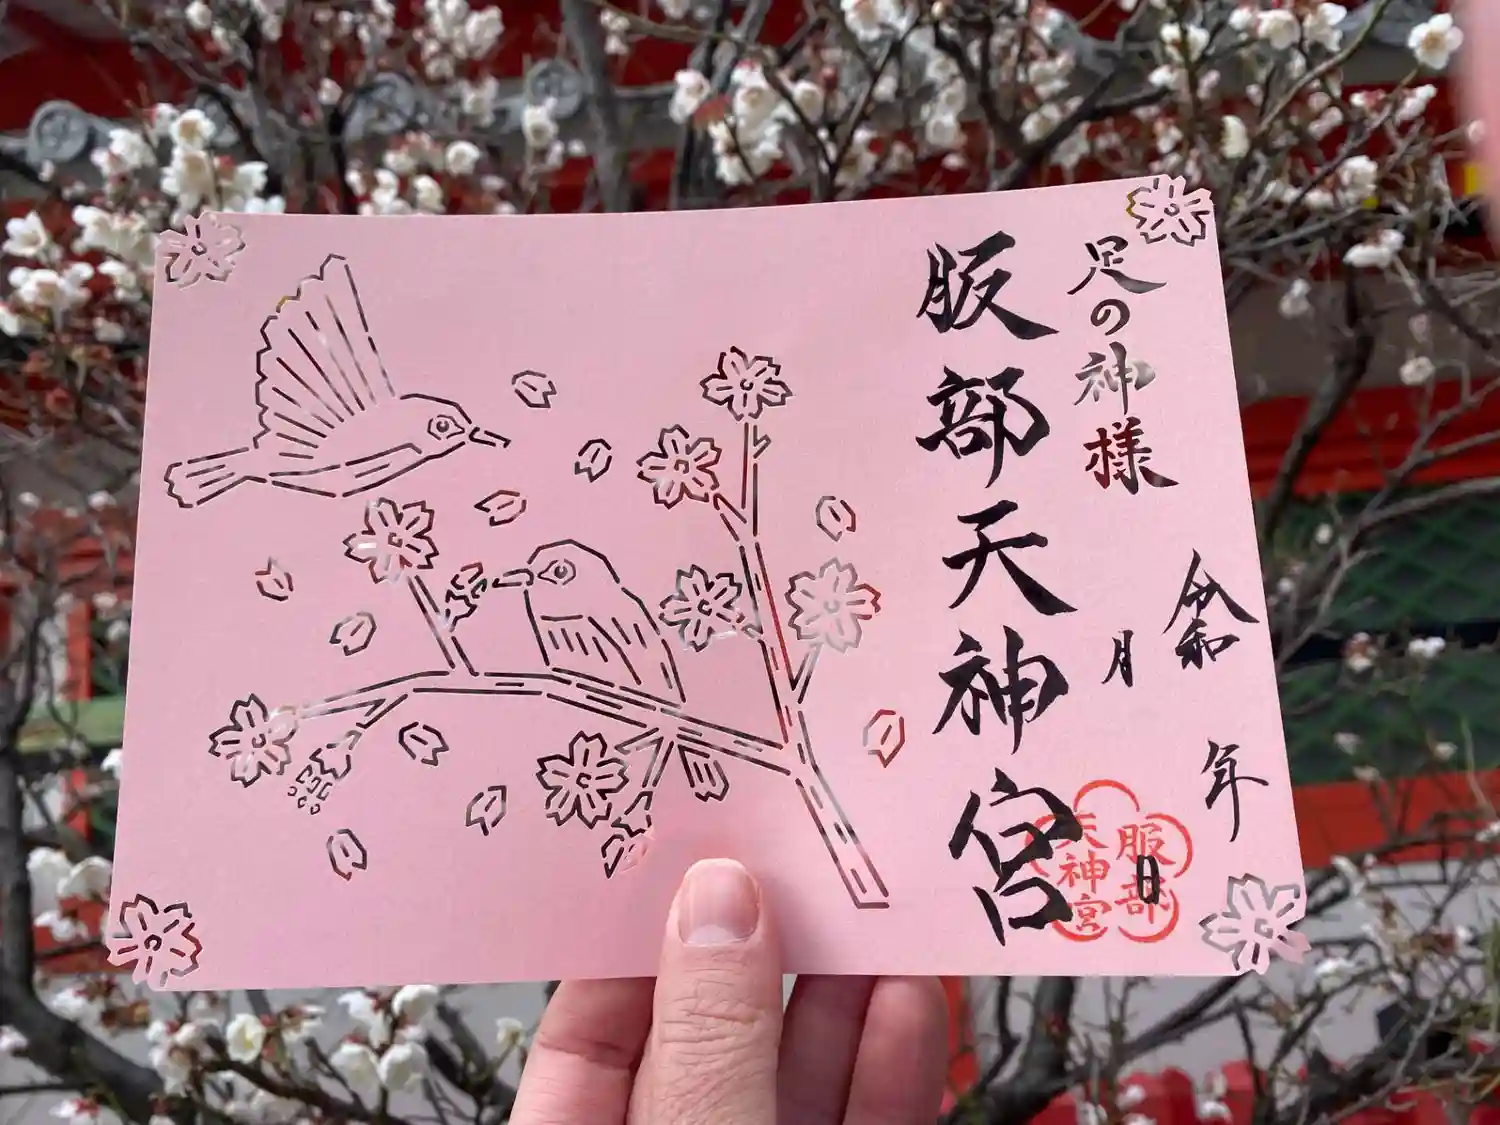 足の神様
服部天神宮
令和 年
月
日
服部
天神宮